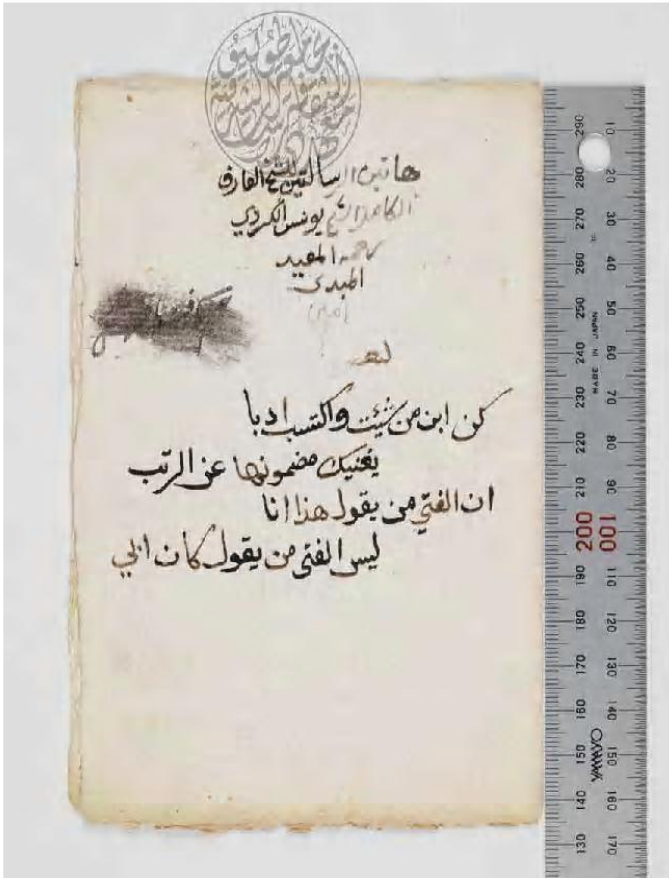 هاتين الرسالتين للشيخ العارف
الكامل الشيخ يونس الكردي
رحمه المعيد
المبدى
كن ابن من شيئت واكتسب ادبا
يغنيك مضمونها عن الرتب
ان الفتى من يقول هذا انا
ليس الفتى من يقول كان ابي
290 280 270 260 250 240 230 220 210 200 190 180 170 160 150 140 130
MADE IN JAPAN
10 20 30 40 50 60 70 80 90 100 110 120 130 140 150 160 170